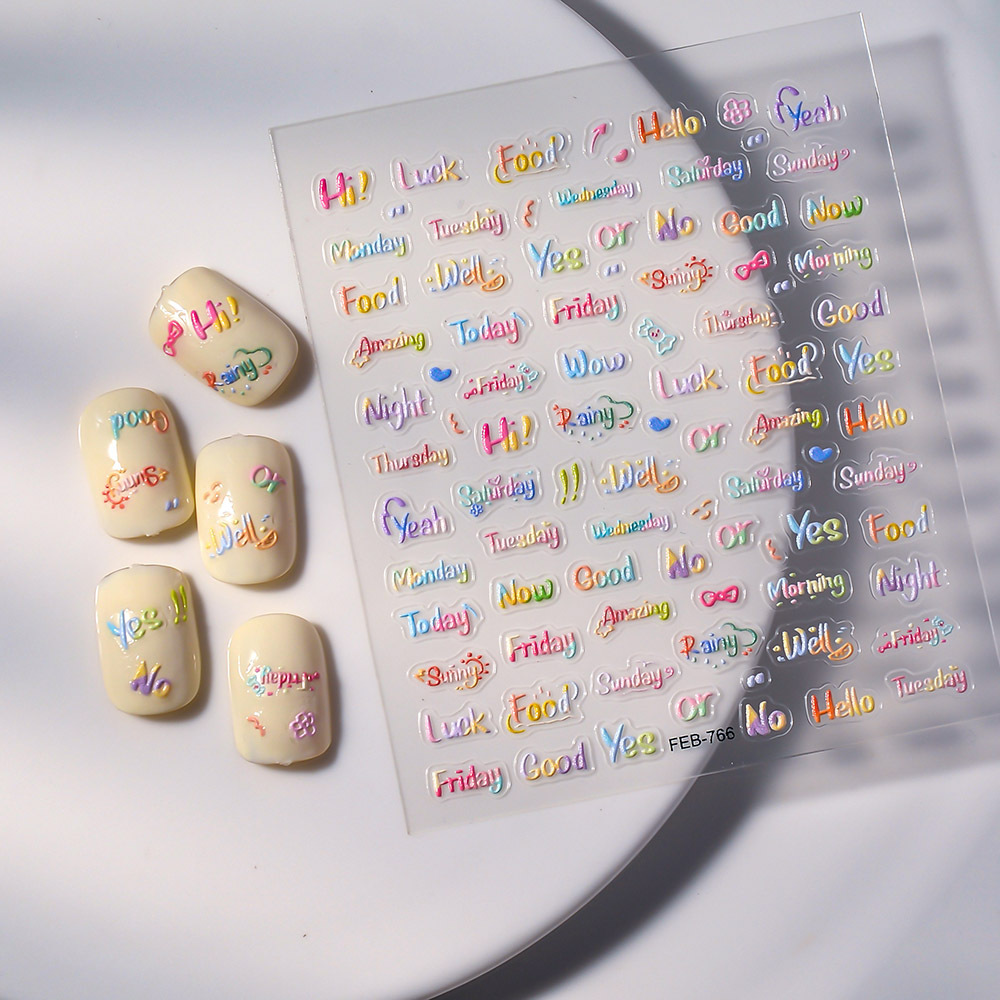 Hi! Luck Food Hello Yeah
Wednesday Saturday Sunday
Monday Tuesday Yes Or No Good Now
Food Well Sunny Morning
Amazing Today Friday Thursday Good
Night Friday Wow Luck Food Yes
Thursday Hi! Rainy Or Amazing Hello
Yeah Saturday !! Well Saturday Sunday
Tuesday Wednesday Or Yes Food
Monday Now Good No Morning Night
Today Friday Amazing Rainy Well Friday
Sunny Sunday Tuesday
Luck Food Or No Hello
Friday Good Yes FEB-766
Hi!
Rainy
Good
Sunny
Or
Well
Yes !!
No
Friday